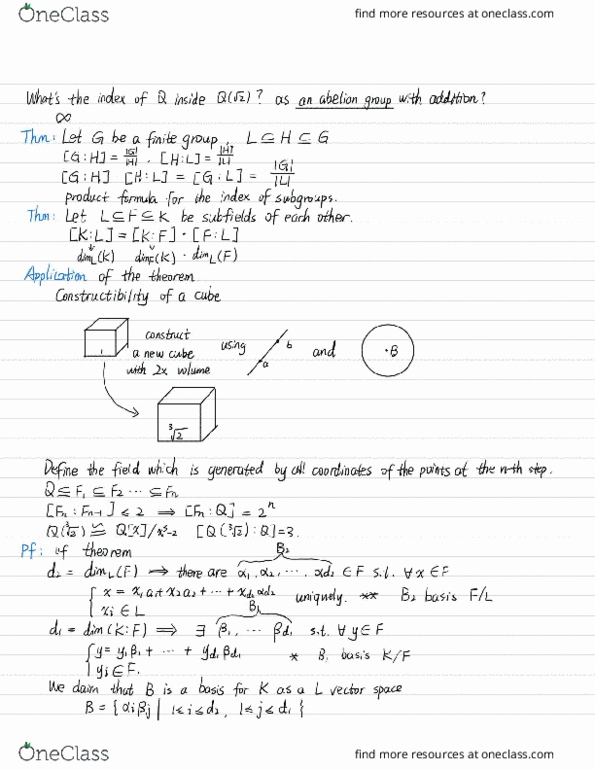 OneClass
find more resources at oneclass.com
What's the index of Q inside Q(√2)? as an abelion group with addition?
∞
Thm: Let G be a finite group, L⊆H⊆G
[G:H] = |G|/|H|, [H:L] = |H|/|L|
[G:H] [H:L] = [G:L] = |G|/|L|
product formula for the index of subgroups.
Thm: Let L⊆F⊆K be subfields of each other.
[K:L] = [K:F]·[F:L]
dim_L(K) dim_F(K)·dim_L(F)
Application of the theorem
Constructibility of a cube
1
construct
a new cube
with 2x volume
using
a
b
and
·B
³√2
Define the field which is generated by all coordinates of the points at the n-th step.
Q⊆F₁⊆F₂ ··· ⊆Fₙ
[Fₙ:Fₙ₋₁] ≤ 2 ⟹ [Fₙ:Q] = 2ⁿ
Q(³√2) ≅ Q[x]/x³-2 [Q(³√2):Q]=3.
Pf: of theorem
B₂
d₂ = dim_L(F) ⟹ there are α₁, α₂, ···, αd₂ ∈ F s.t. ∀x∈F
{ x = x₁α₁+x₂α₂+ ··· +xd₂αd₂ uniquely. ** B₂ basis F/L
xi ∈ L
B₁
d₁ = dim(K:F) ⟹ ∃ β₁, ··· βd₁ s.t. ∀y∈F
{ y = y₁β₁ + ··· + yd₁βd₁ * B₁ basis K/F
yi ∈ F.
We claim that B is a basis for K as a L vector space
B = { αiβj | 1≤i≤d₂, 1≤j≤d₁ }
OneClass
find more resources at oneclass.com